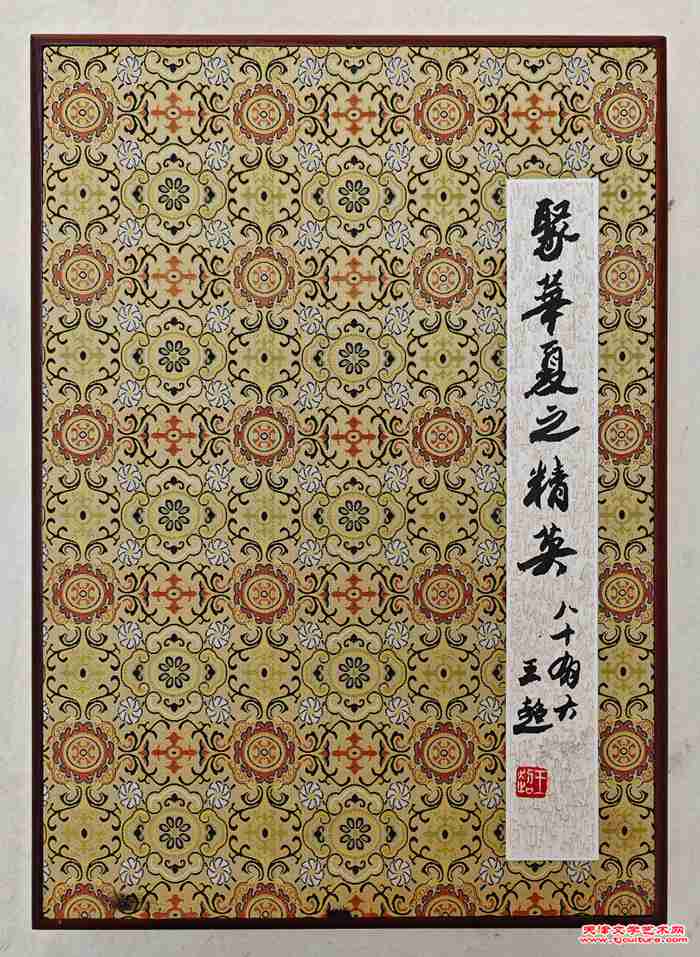 聚華夏之精英
八十有六
王超
天津文学艺术网
www.tjculture.com